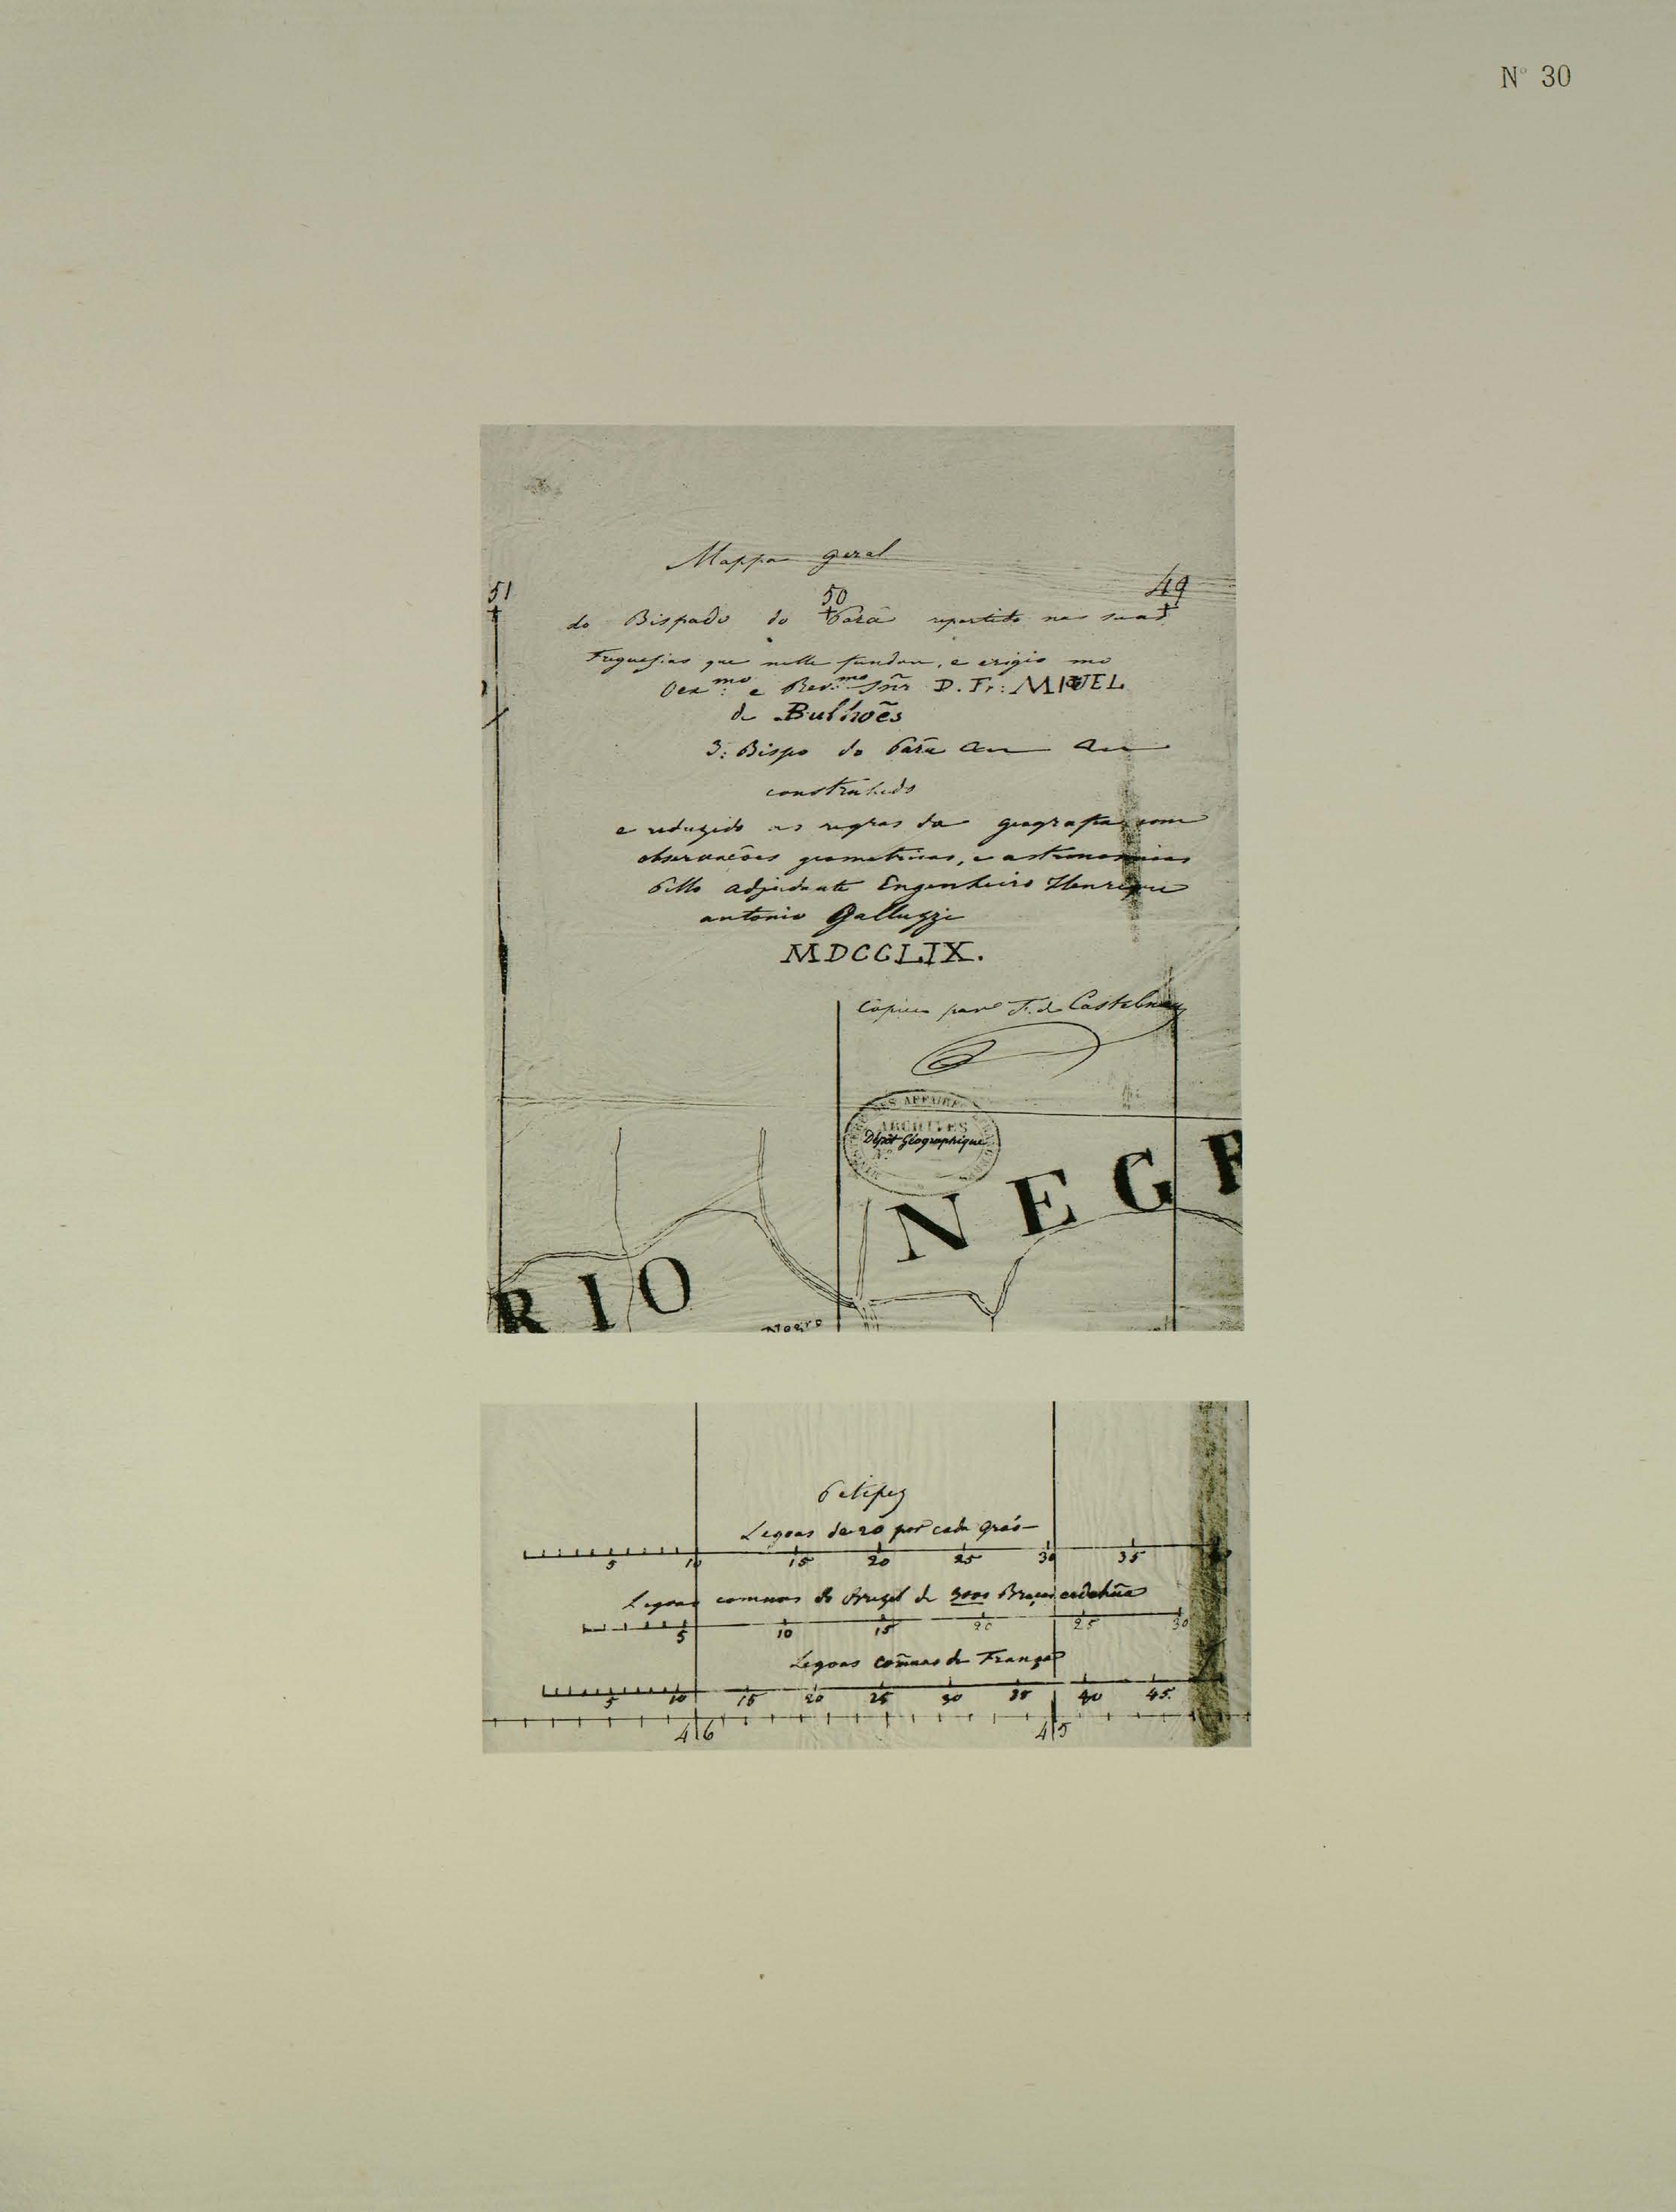 N° 30
Mappa geral
51 50 49
do Bispado do Pará repartido nas suas
Freguesias que nelle fundou, e erigio
Oex.mo e Rev.mo Sñr D. Fr: MIGUEL
de Bulhoẽs
3: Bispo do Pará
construhido
e reduzido as regras da geografia com
observacões geometricas, e astronomicas
Pello adjudante Engenheiro Henrique
antonio Galluzzi
MDCCLIX.
Copiée par F. de Castelnau
ARCHIVES
Dépôt Géographique
No
RIO NEGR
Negro
Petipez
Legoas de 20 por cada Grão
5 10 15 20 25 30 35
Legoas comuas do Brazil de 3000 Braças
5 10 15 20 25 30
Legoas comuas de França
5 10 15 20 25 30 35 40 45
46 45